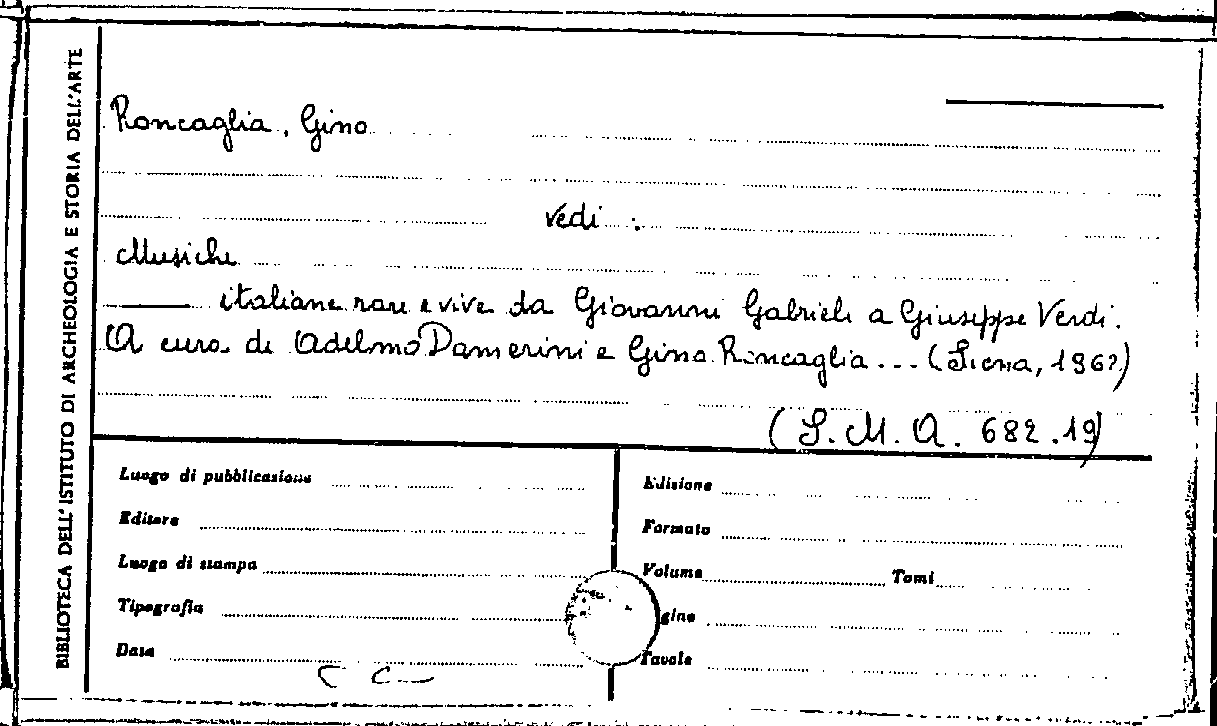 BIBLIOTECA DELL'ISTITUTO DI ARCHEOLOGIA E STORIA DELL'ARTE
Roncaglia, Gino
Vedi :
Musiche
italiane rare e vive da Giovanni Gabrieli a Giuseppe Verdi.
A cura di Adelmo Damerini e Gino Roncaglia... (Siena, 1962)
(S.M.A. 682.19)
Luogo di pubblicazione
Editore
Luogo di stampa
Tipografia
Data
Edizione
Formato
Volume Tomi
gine
Tavole